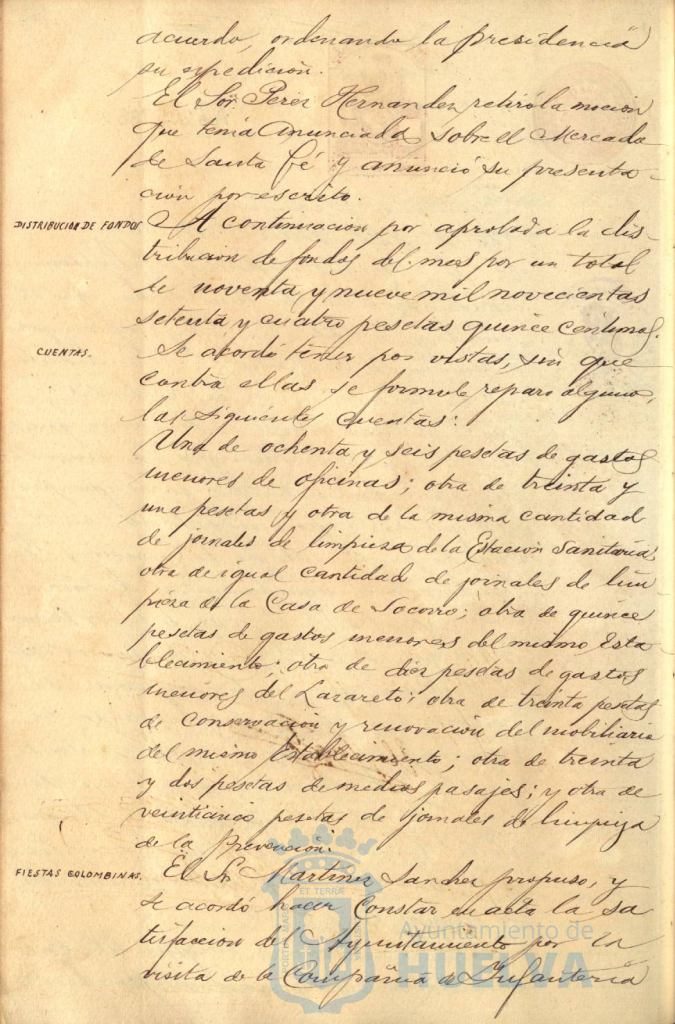 acuerdo, ordenando la presidencia
su expedición.
El Sor. Perez Hernandez retiró la mocion
que tenia anunciada sobre el Mercado
de Santa Fé y anunció su presenta-
ción por escrito.
DISTRIBUCION DE FONDOS A continuacion por aprobada la dis-
tribucion de fondos del mes por un total
de noventa y nueve mil novecientas
setenta y cuatro pesetas quince centimos.
CUENTAS. Se acordó tener por vistas, sin que
contra ellas se formule reparo alguno,
las siguientes cuentas:
Una de ochenta y seis pesetas de gastos
menores de oficinas; otra de treinta y
una pesetas y otra de la misma cantidad
de jornales de limpieza de la Estacion Sanitaria;
otra de igual cantidad de jornales de lim-
pieza de la Casa de Socorro; otra de quince
pesetas de gastos menores del mismo Esta-
blecimiento; otra de diez pesetas de gastos
menores del Lazareto; otra de treinta pesetas
de conservacion y renovacion del mobiliario
del mismo Establecimiento; otra de treinta
y dos pesetas de medios pasajes; y otra de
veinticinco pesetas de jornales de limpieza
de la Prevencion.
FIESTAS COLOMBINAS. El Sr. Martinez Sanchez propuso, y
se acordó hacer constar en acta la sa-
tisfaccion del Ayuntamiento por la
visita de la Compañia de Infanteria
Ayuntamiento de
HUELVA